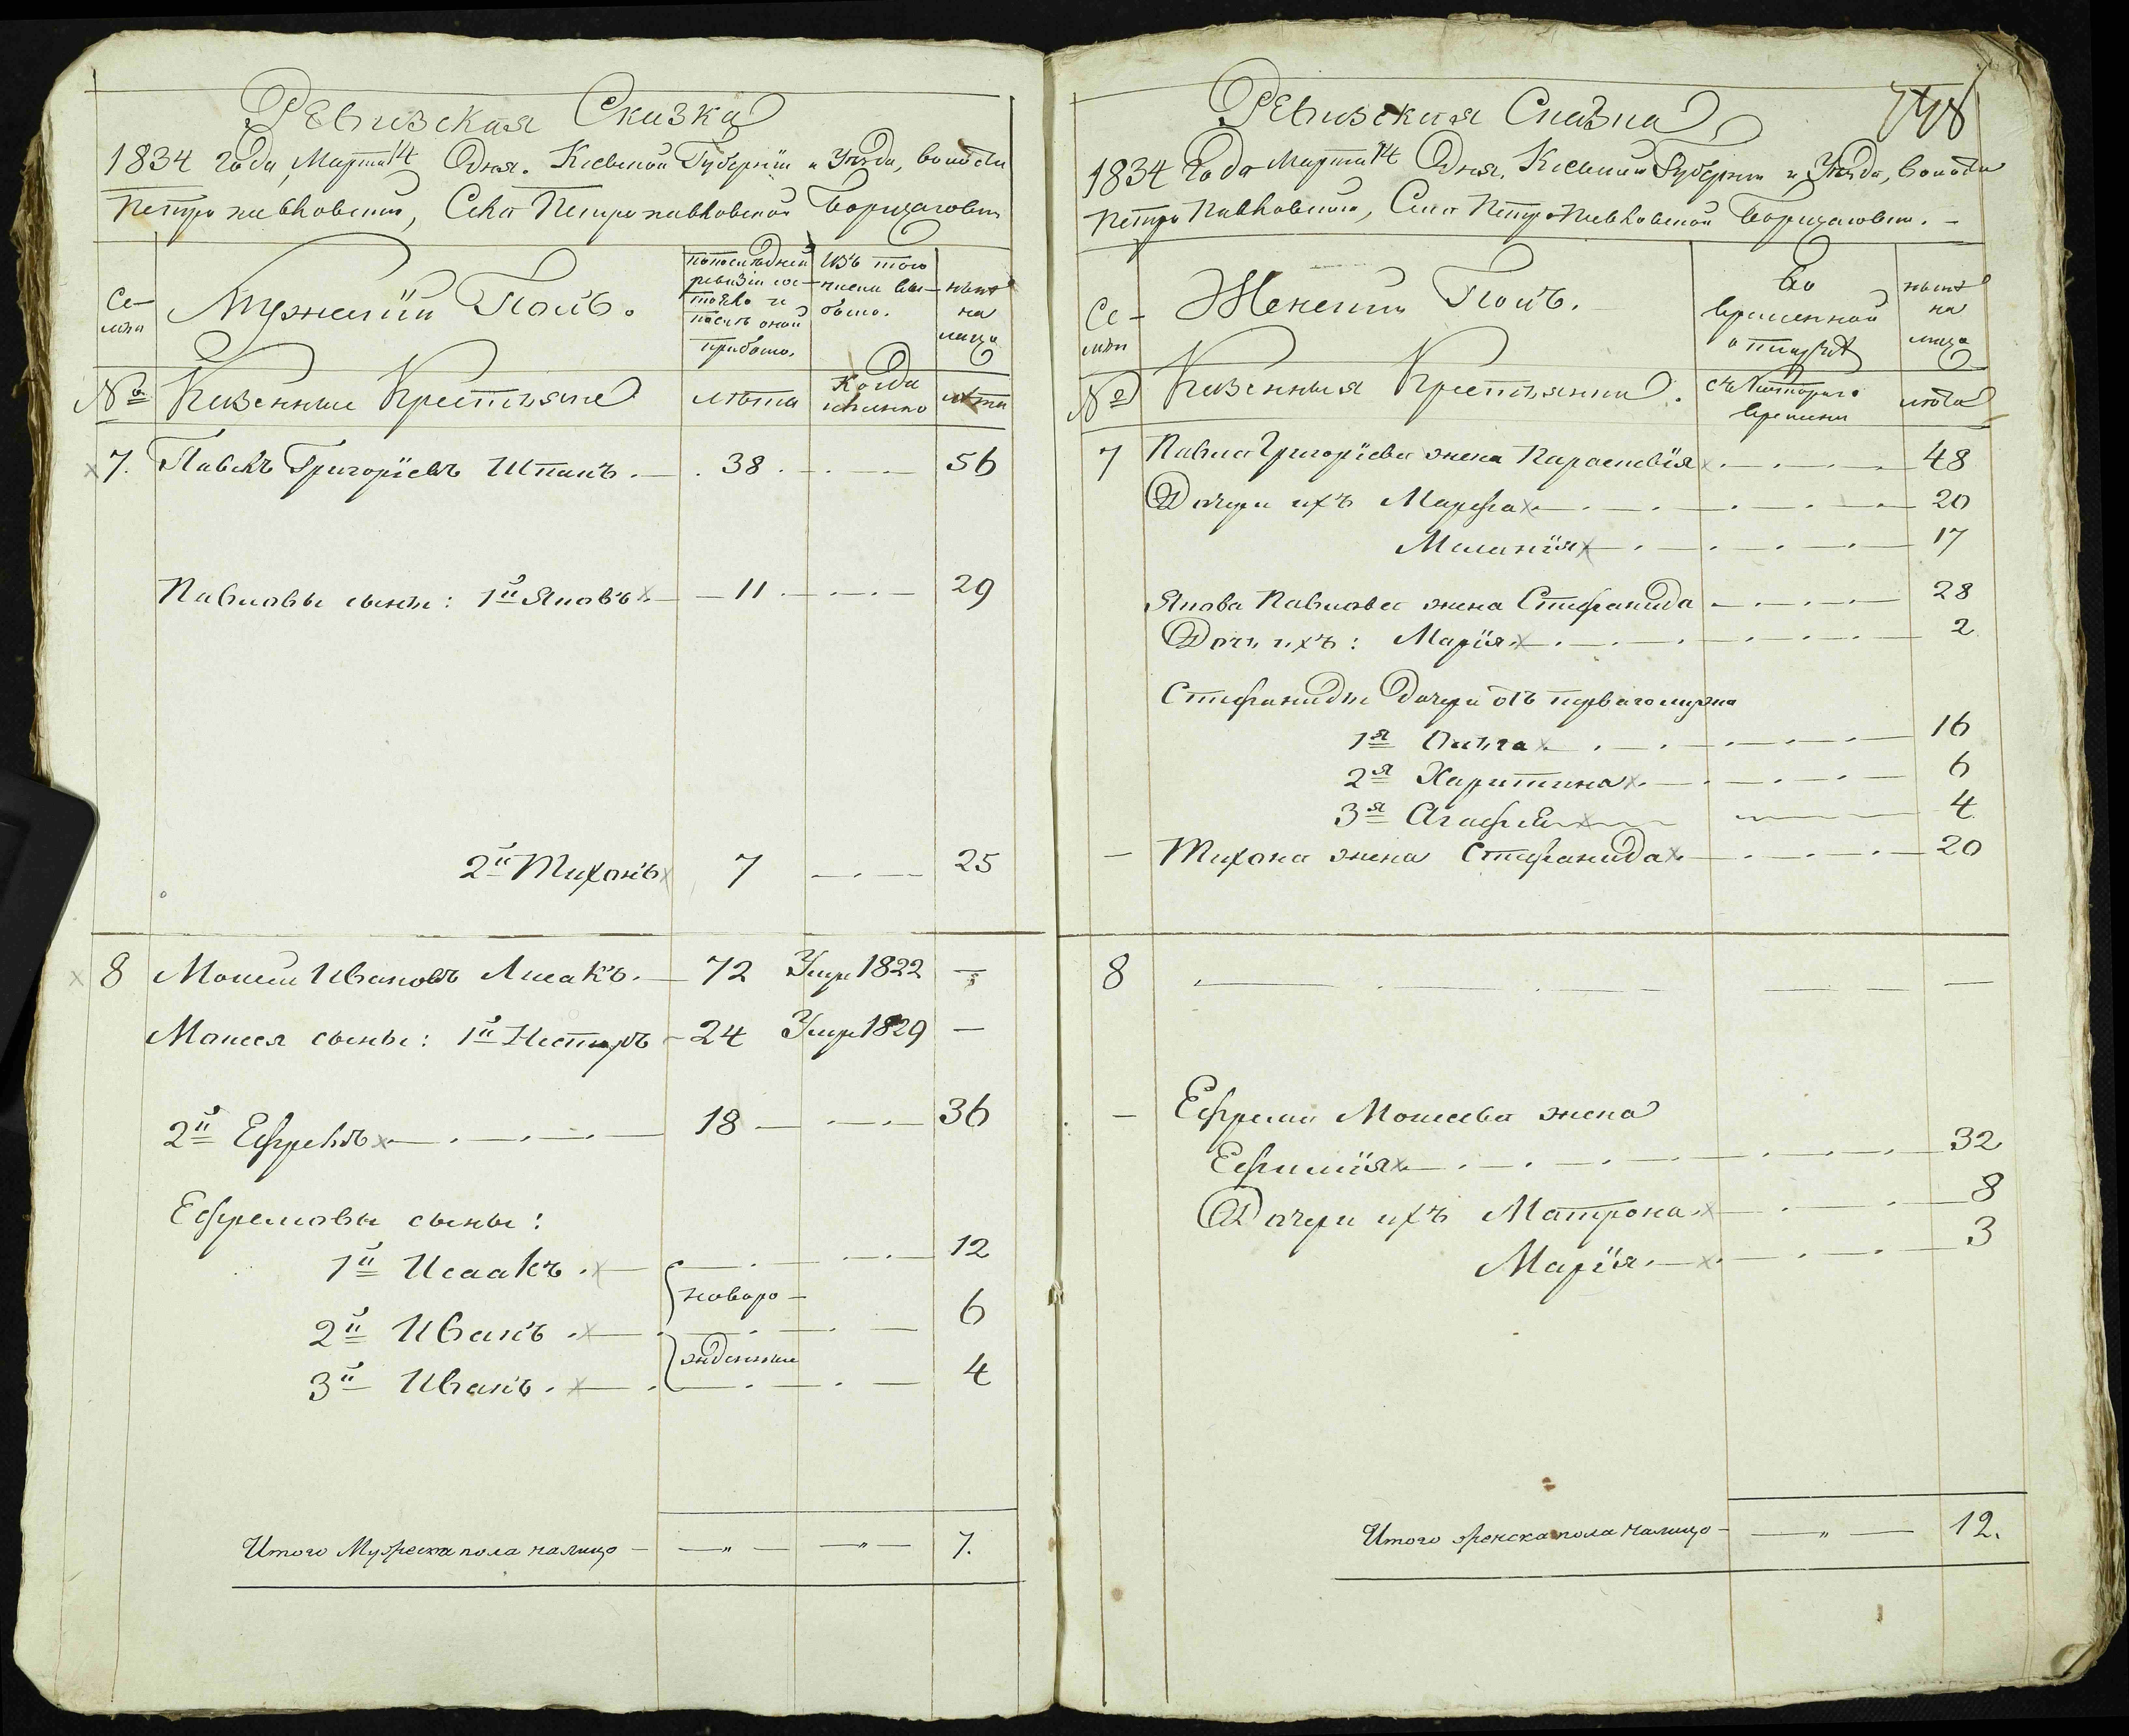 Ревизская Сказка
1834 года, Марта 14 Дня. Кіевской Губерніи и Уѣзда, волости
Петропавловской, Села Петропавловской Борщаговки
Се-
мьи
Мужескій Полъ.
по послѣдней
ревизіи со-
стояло и
послѣ оной
прибыло.
Изъ того
числа вы-
было.
нынѣ
на
лицо
№
Казенные Крестьяне
лѣта
Когда
именно
лѣта
7. Павелъ Григоріевъ Шпакъ. 38 56
Павловы сыны: 1й Яковъ 11 29
2й Тихонъ 7 25
8 Моисей Ивановъ Лисакъ. 72 Умре 1822 —
Моисея сыны: 1й Несторъ 24 Умре 1829 —
2й Ефремъ 18 36
Ефремовы сыны:
1й Исаакъ 12
новоро-
2й Иванъ 6
жденные
3й Иванъ 4
Итого Мужеска пола налицо — " — — " — 7.
748
Ревизская Сказка
1834 Года Марта 14 Дня, Кіевской Губерніи и Уѣзда, волости
Петро Павловской, Села Петро Павловской Борщаговки.
Се-
мьи
Женскій Полъ.
Во
временной
отлучкѣ
нынѣ
на
лицо
№
Казенныя Крестьянки.
съ котораго
времени
лѣта
7 Павла Григоріева жена Параскевія 48
Дочери ихъ Марфа 20
Меланія 17
Якова Павлова жена Стефанида 28
Дочь ихъ: Марія 2
Стефаниды дочери отъ перваго мужа
1я Ольга 16
2я Харитина 6
3я Агафія 4
— Тихона жена Стефанида 20
8 — — —
— Ефрема Моисеева жена
Ефимія 32
Дочери ихъ Матрона 8
Марія 3
Итого женска пола налицо — " — 12.